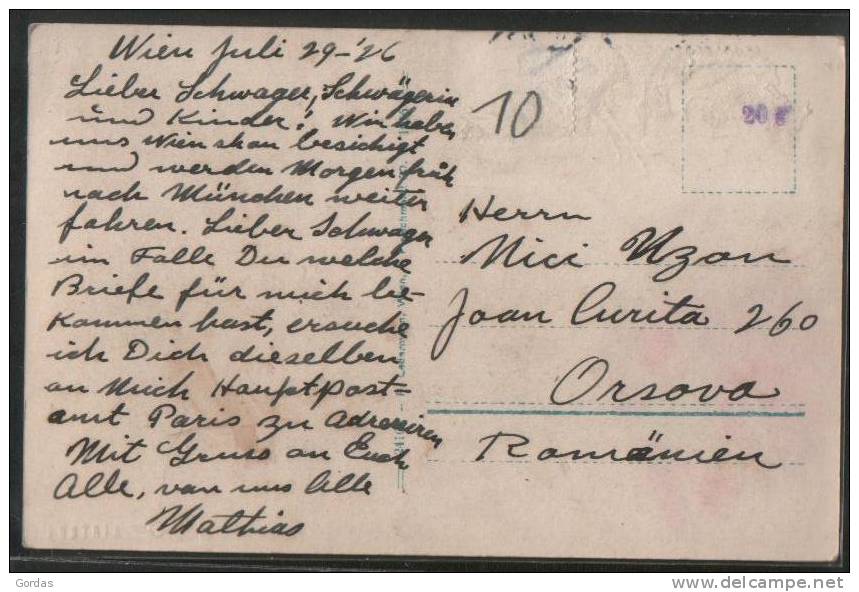 Wien Juli 29-'26
Lieber Schwager, Schwägerin
und Kinder! Wir haben
uns Wien skon besichigt
und werden Morgen früh
nach München weiter
fahren. Lieber Schwager
im Falle Du welche
Briefe für mich be-
kommen hast, ersuche
ich Dich dieselben
an Mich Hauptpost-
amt Paris zu Adresiren
Mit Gruss an Euch
Alle, von uns Alle
Mathias
10
20 g
Herrn
Nici Uzon
Joan Curita 260
Orsova
Romänien
Gordas
www.delcampe.net